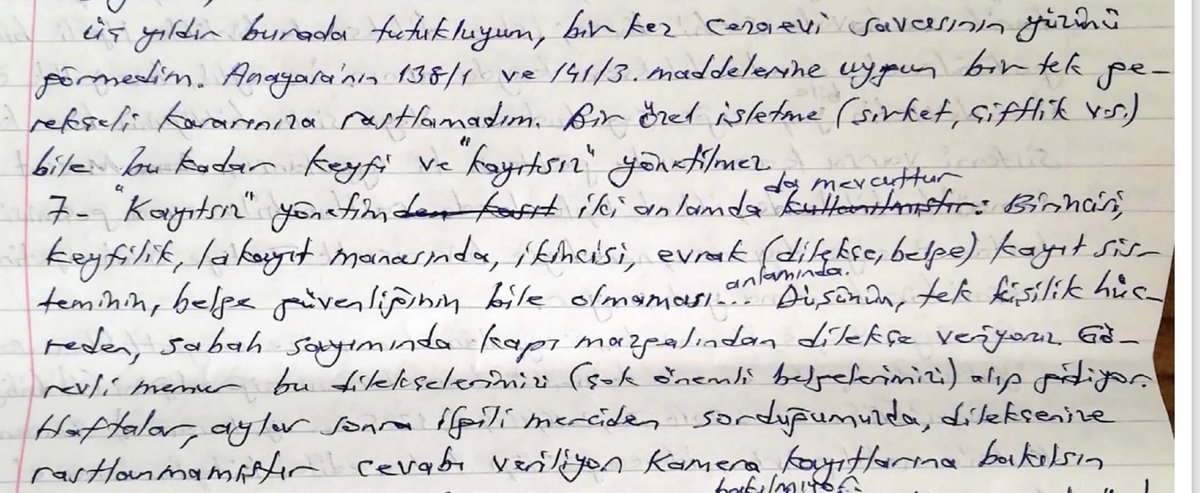 üç yıldır burada tutukluyum, bir kez cezaevi savcısının yüzünü
görmedim. Anayasa'nın 138/1 ve 141/3. maddelerine uygun bir tek ge-
rekçeli kararınıza rastlamadım. Bir özel işletme (şirket, çiftlik vs.)
bile bu kadar keyfi ve "kayıtsız" yönetilmez
da mevcuttur
7- "Kayıtsız" yönetimden kasıt iki anlamda kullanılmıştır: Birincisi,
keyfilik, lakayıt manasında, ikincisi, evrak (dilekçe, belge) kayıt sis-
anlamında.
teminin, belge güvenliğinin bile olmaması... Düşünün, tek kişilik hüc-
reden, sabah sayımında kapı mazgalından dilekçe veriyoruz Gö-
revli memur bu dilekçelerimizi (çok önemli belgelerimizi) alıp gidiyor.
Haftalar, aylar sonra ilgili merciden sorduğumuzda, dilekçenize
rastlanmamıştır cevabı veriliyor. Kamera kayıtlarına bakılsın